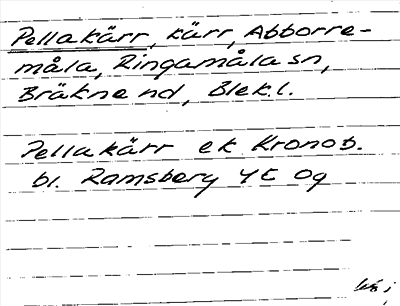 Pellakärr, kärr, Abborre-
måla, Ringamåla sn,
Bräkne hd, Blek.l.
Pellakärr ek Kronob.
bl. Ramsberg 4C 0g